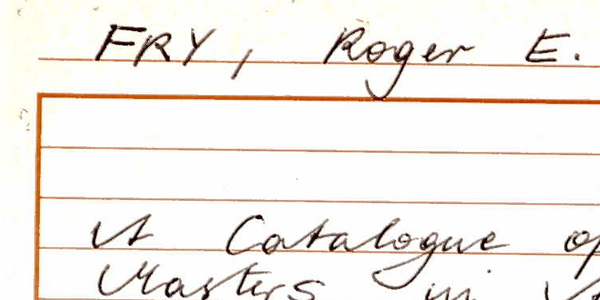 FRY, Roger E.
A Catalogue of
Masters in